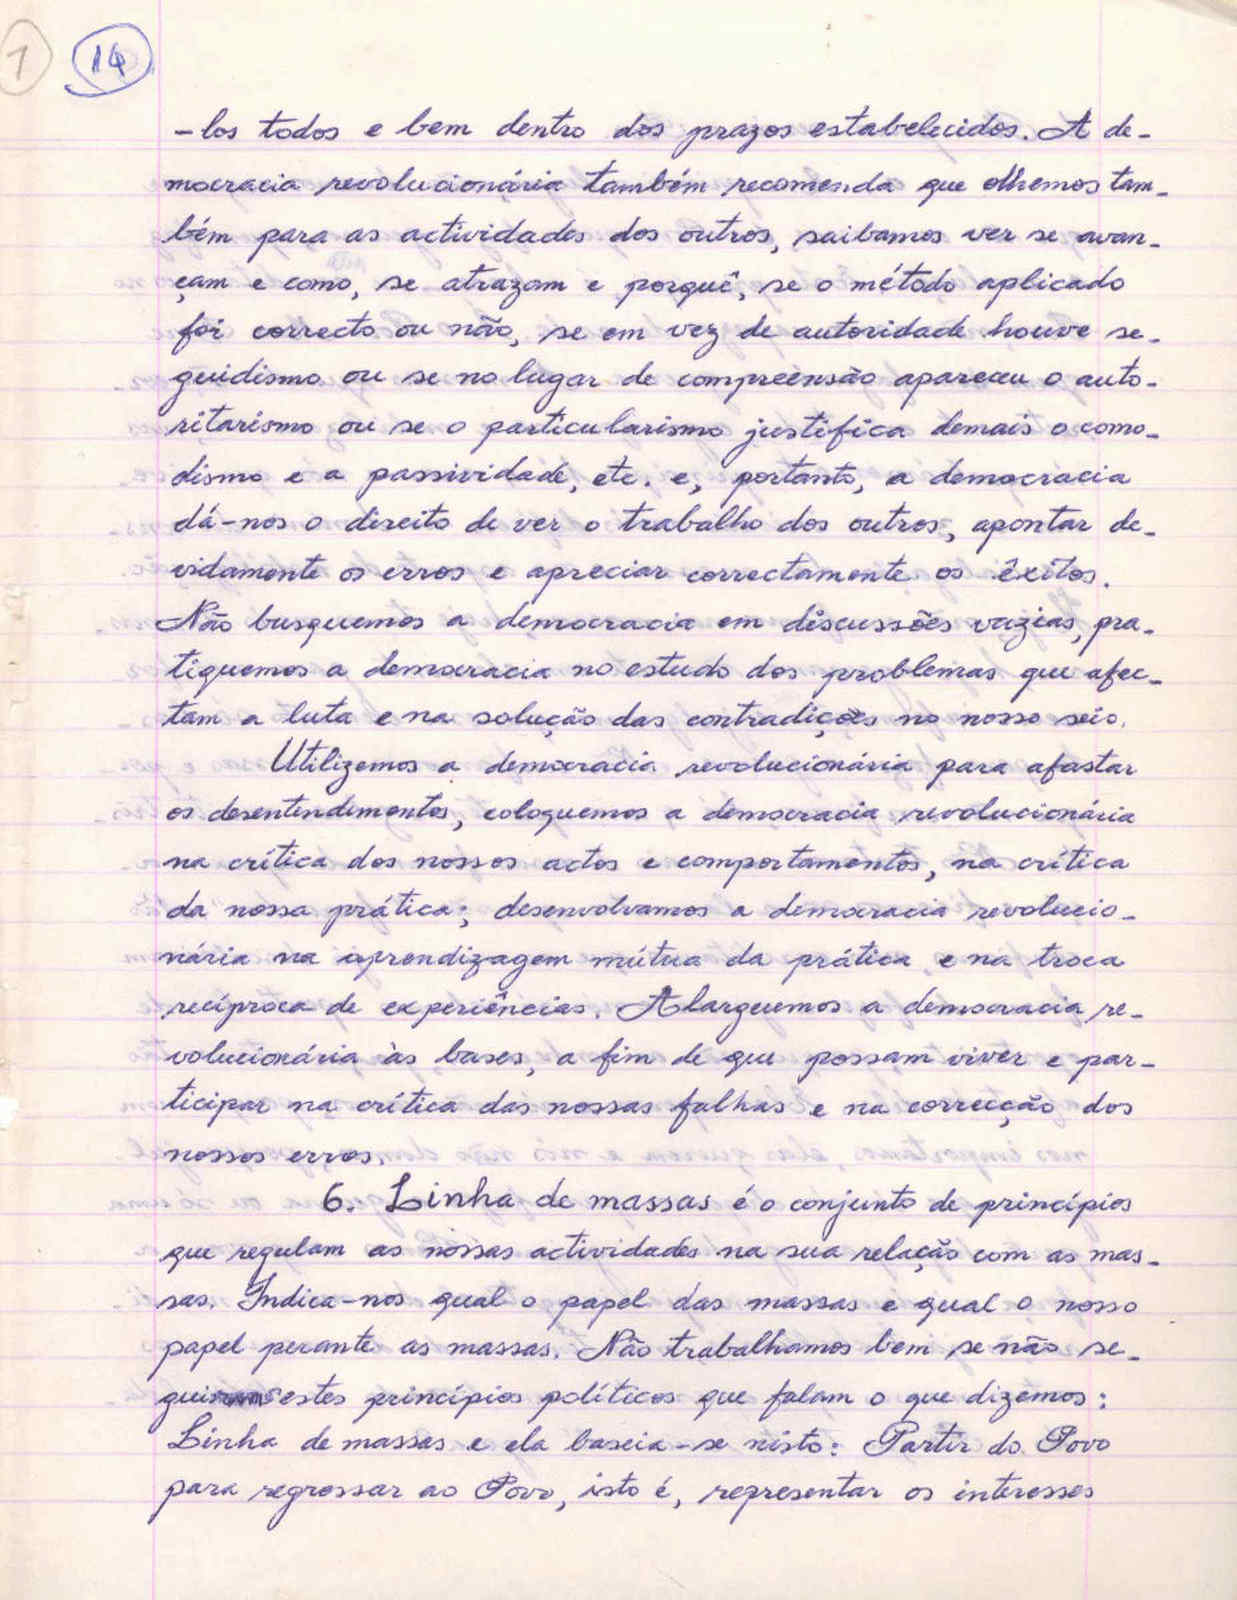 7 14
-los todos e bem dentro dos prazos estabelecidos. A de-
mocracia revolucionária também recomenda que olhemos tam-
bém para as actividades dos outros, saibamos ver se avan-
çam e como, se atrazam e porquê, se o método aplicado
foi correcto ou não, se em vez de autoridade houve se-
guidismo ou se no lugar de compreensão apareceu o auto-
ritarismo ou se o particularismo justifica demais o como-
dismo e a passividade, etc. e, portanto, a democracia
dá-nos o direito de ver o trabalho dos outros, apontar de-
vidamente os erros e apreciar correctamente os êxitos.
Não busquemos a democracia em discussões vazias, pra-
tiquemos a democracia no estudo dos problemas que afec-
tam a luta e na solução das contradições no nosso seio.
Utilizemos a democracia revolucionária para afastar
os desentendimentos, coloquemos a democracia revolucionária
na crítica dos nossos actos e comportamentos, na crítica
da nossa prática; desenvolvamos a democracia revolucio-
nária na aprendizagem mútua da prática, e na troca
recíproca de experiências. Alarguemos a democracia re-
volucionária às bases, a fim de que possam viver e par-
ticipar na crítica das nossas falhas e na correcção dos
nossos erros.
6. Linha de massas é o conjunto de princípios
que regulam as nossas actividades na sua relação com as mas-
sas. Indica-nos qual o papel das massas e qual o nosso
papel perante as massas. Não trabalhamos bem se não se-
guirmos estes princípios políticos que falam o que dizemos:
Linha de massas e ela baseia-se nisto: Partir do Povo
para regressar ao Povo, isto é, representar os interesses